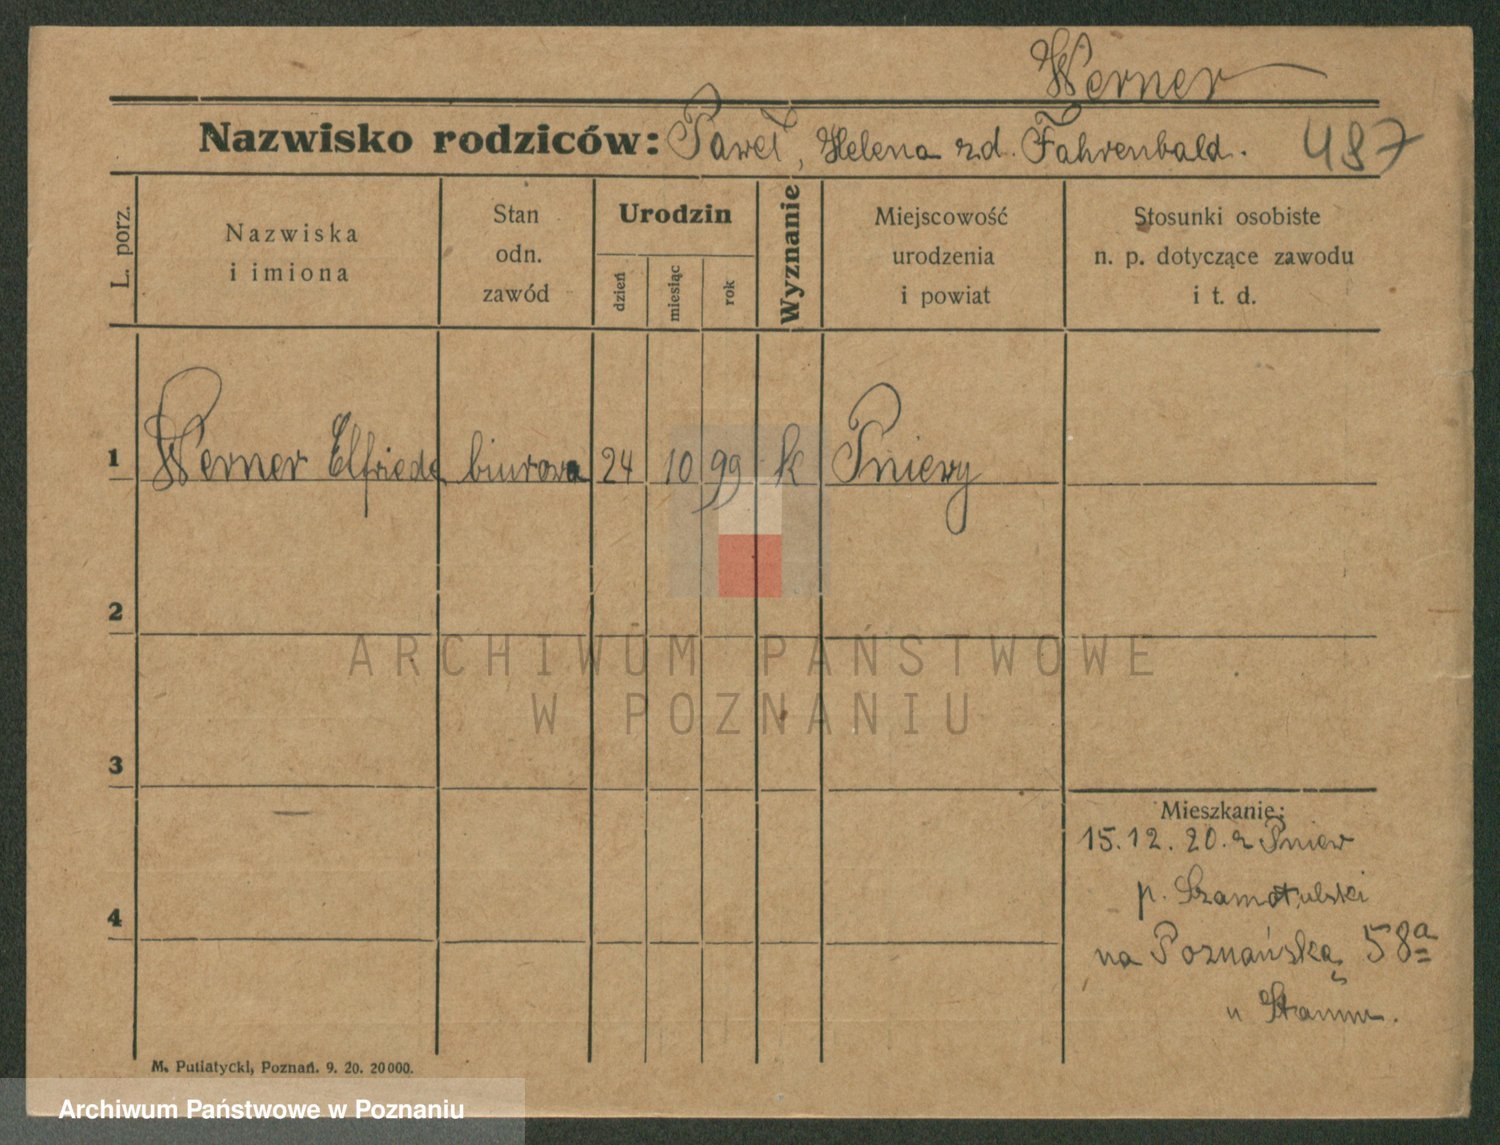 Werner
Nazwisko rodziców: Paweł, Helena z d. Fahrenbald. 487
L. porz.
Nazwiska
i imiona
Stan
odn.
zawód
Urodzin
dzień
miesiąc
rok
Wyznanie
Miejscowość
urodzenia
i powiat
Stosunki osobiste
n. p. dotyczące zawodu
i t. d.
1 Werner Elfriede biurowa 24 10 99 k Pniewy
2
3
4
Mieszkanie:
15.12.20. z Pniew
p. Szamotulski
na Poznańską 58a
u Stamm.
M. Putiatycki, Poznań. 9. 20. 20000.
ARCHIWUM PAŃSTWOWE
W POZNANIU
Archiwum Państwowe w Poznaniu